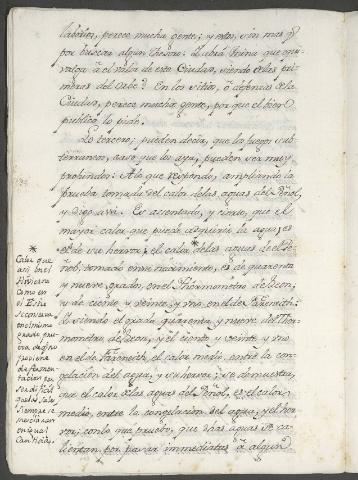 laborios, perece mucha gente; y estos, sin mas q.e
por buscar algun thesoro: Habrá Reina que equi-
valga á el valor de esta Ciudad, siendo de las pri-
meras del orbe? En los sitios, ó defensas de la
Ciudad, perece mucha gente, por que el bien
publico lo pide.
Lo tercero; pueden decir, que los fuegos sub-
terraneos, caso que los aya, pueden ser muy
profundos: A lo que respondo, ampliando la
prueba tomada del calor de las aguas del Peñol,
y digo assi: Es assentado, y cierto, que el
mayor calor que puede adquirir la agua, es
el de su hervor; el calor * de las aguas del Pe-
ñol, tomado en su nacimiento, es de quarenta
y nueve grados, en el Thermometro de
y de ciento y veinte, y uno, en el de Fareneith:
Y siendo el grado quarenta, y nueve del Ther-
mometro de y el ciento, y veinte, y uno
en el de Fareneith, el calor medio, entre la con-
gelacion del agua, y su hervor; se demuestra,
que el calor de las aguas del Peñol, es el calor
medio, entre la congelacion del agua, y el her-
vor; con lo que pruebo, que dichas aguas se ca-
lientan por passar immediatas á algun
*
Calor que
assi en el
Hivierno
como en
el Estio
se conserva
en el mismo
grado: prue-
ba de que no
proviene
de fermen-
tacion
que las Sales
siempre se
en igual
Cantidad.